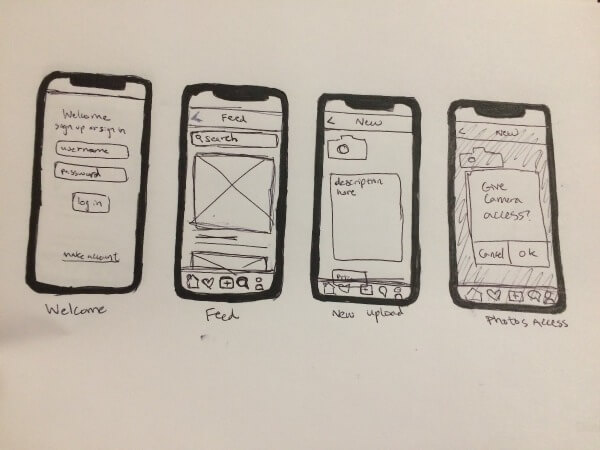 Welcome
sign up or sign in
username
password
log in
make account
Welcome
< Feed
search
Feed
< New
description
here
New Upload
< New
Give
Camera
access?
Cancel
OK
Photos Access